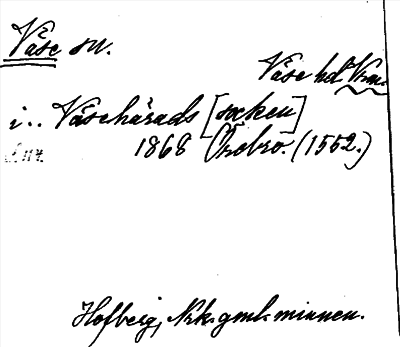 Väse sn.
Väse hd Vrm.
i.. Väsehärads [socken]
1868 Örebro. (1552.)
Hofberg, Nrk. gml. minnen.